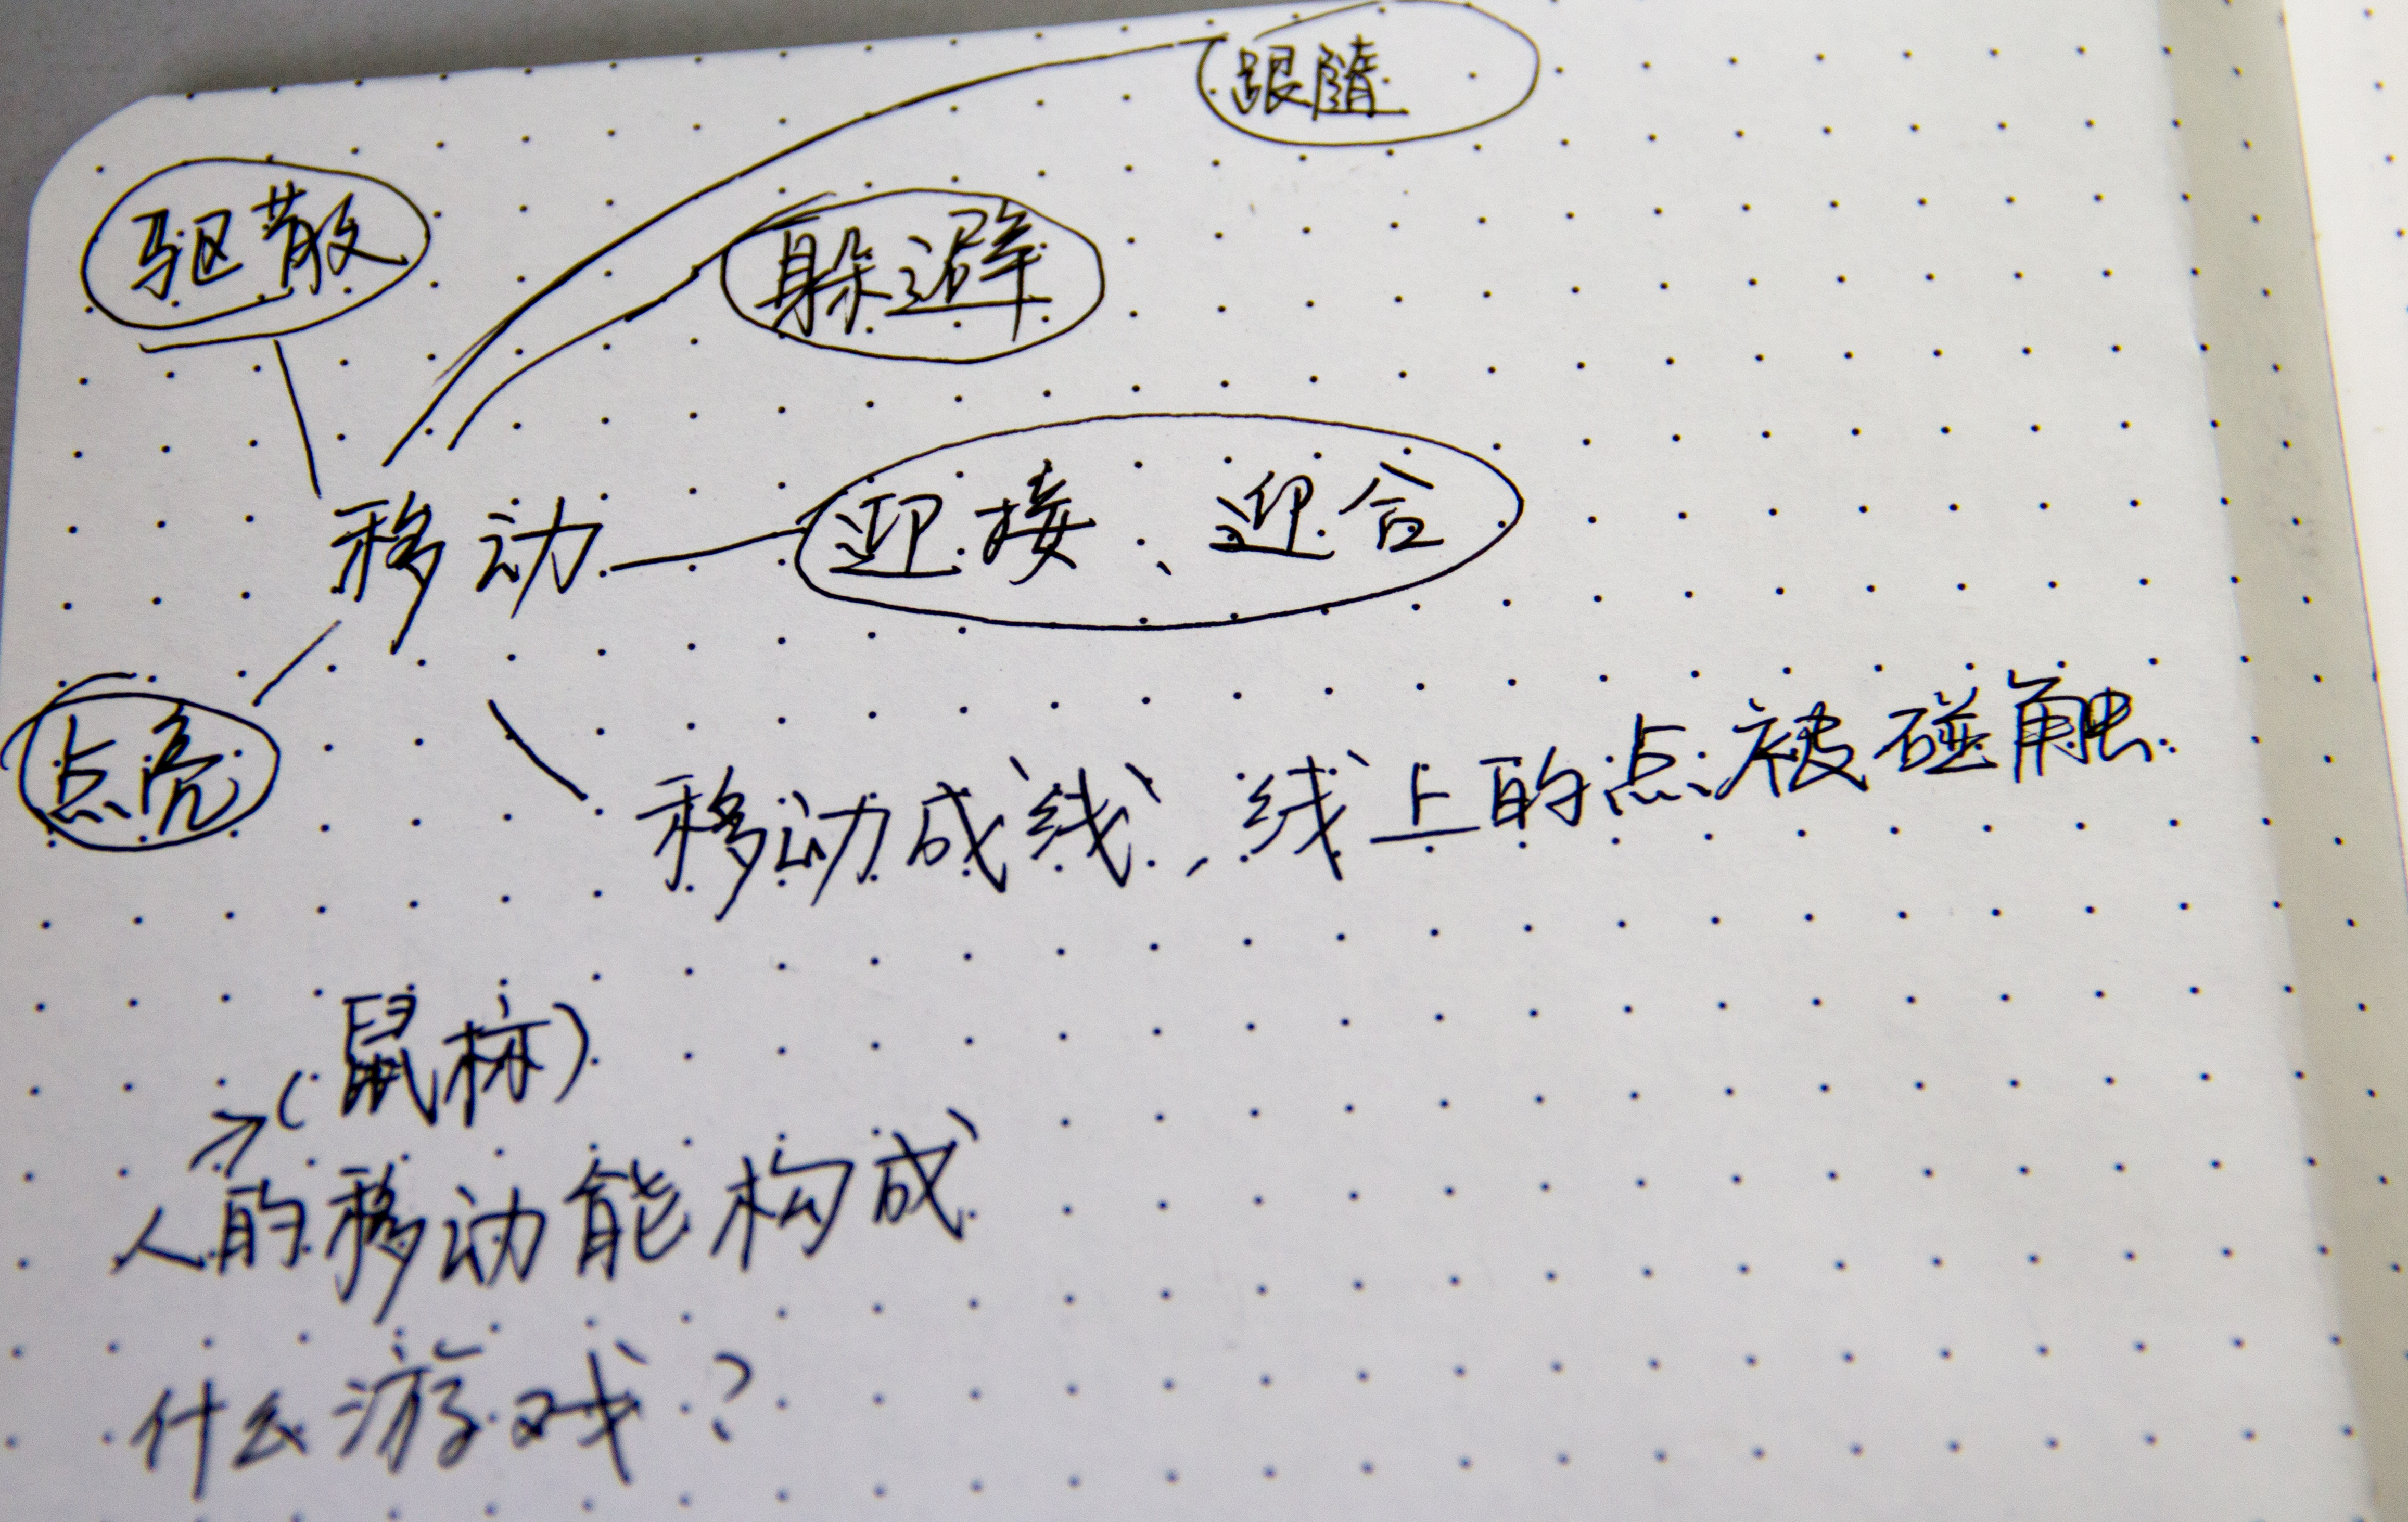 跟随
驱散
躲避
移动
迎接、迎合
点亮
移动成线,线上的点被碰触
(鼠标)
人的移动能构成
什么游戏?